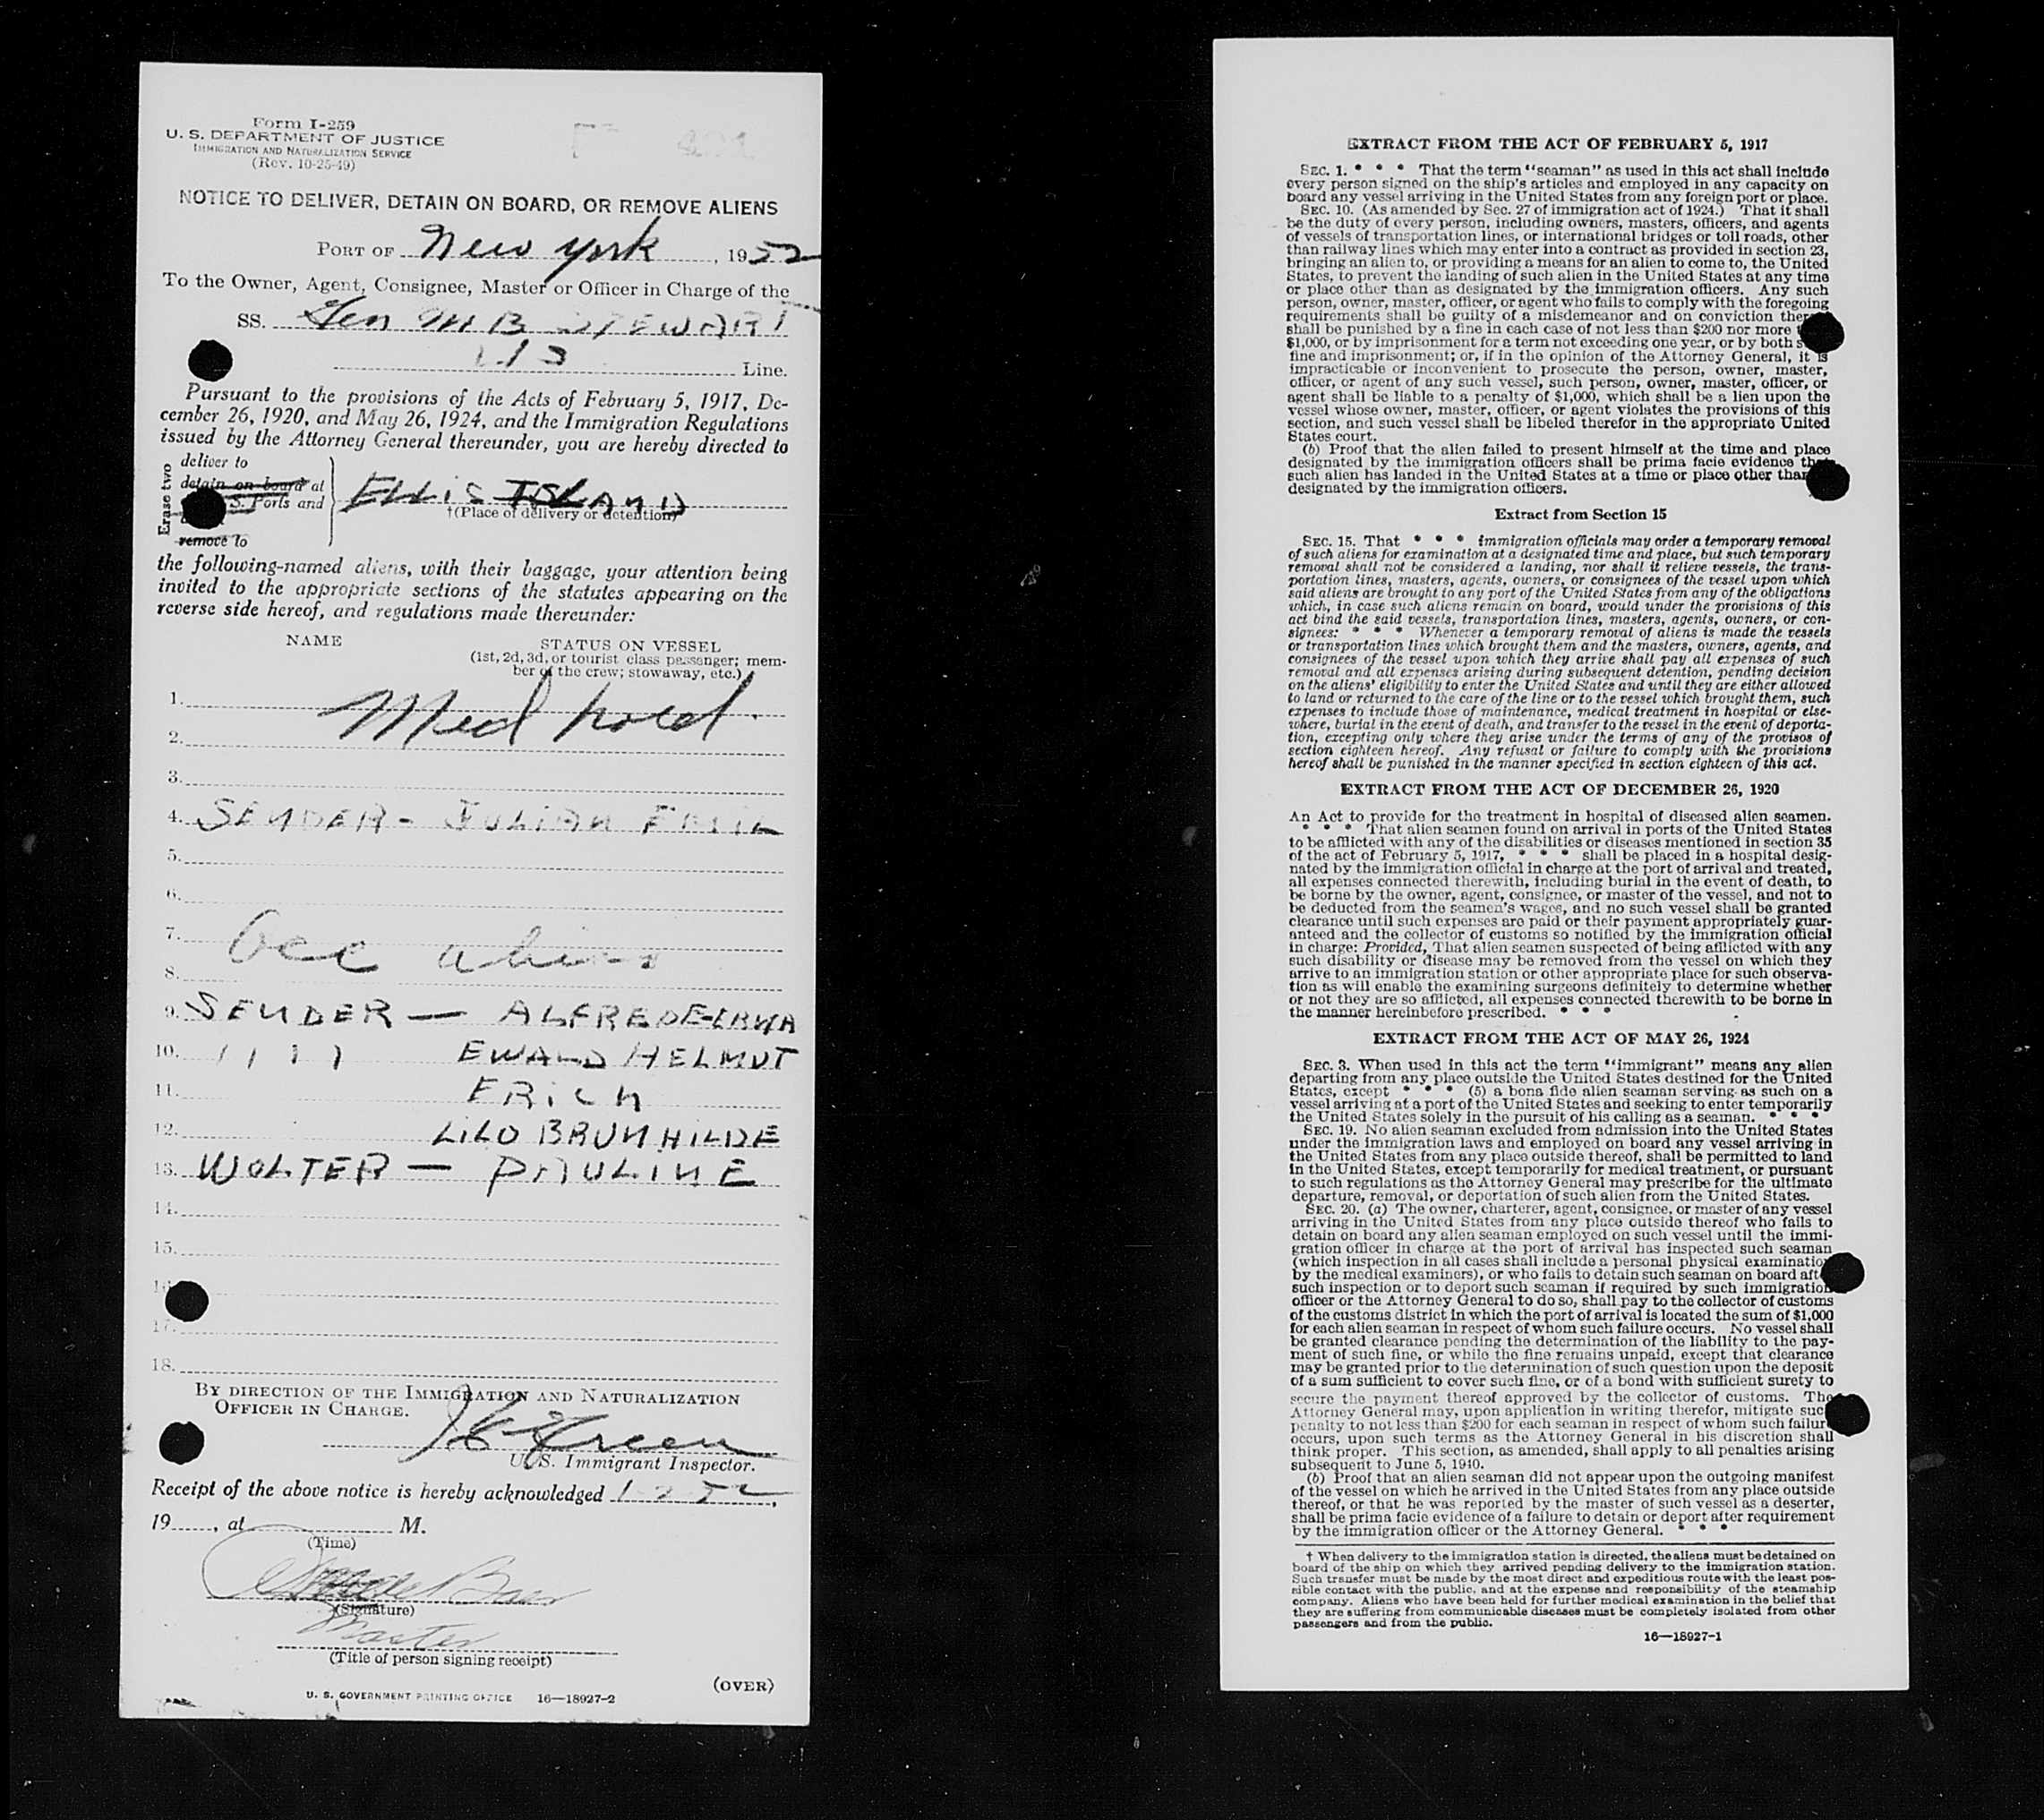 Form I-259
U. S. DEPARTMENT OF JUSTICE
IMMIGRATION AND NATURALIZATION SERVICE
(Rev. 10-25-49)
NOTICE TO DELIVER, DETAIN ON BOARD, OR REMOVE ALIENS
PORT OF New York, 1952
To the Owner, Agent, Consignee, Master or Officer in Charge of the
SS. Gen M B STEWART
Line.
Pursuant to the provisions of the Acts of February 5, 1917, De-
cember 26, 1920, and May 26, 1924, and the Immigration Regulations
issued by the Attorney General thereunder, you are hereby directed to
Erase two
deliver to
detain on board at
S. Ports and
remove to
ELLIS ISLAND
†(Place of delivery or detention)
the following-named aliens, with their baggage, your attention being
invited to the appropriate sections of the statutes appearing on the
reverse side hereof, and regulations made thereunder:
NAME STATUS ON VESSEL
(1st, 2d, 3d, or tourist class passenger; mem-
ber of the crew; stowaway, etc.)
1.
Med hold
2.
3.
4. SENDER - JULIAN EMIL
5.
6.
7. Acc aliens
8.
9. SENDER — ALFREDE-ERNA
10. " " EWALD HELMUT
11. ERICH
12. LILO BRUNHILDE
13. WOLTER — PAULINE
14.
15.
16
17.
18.
BY DIRECTION OF THE IMMIGRATION AND NATURALIZATION
OFFICER IN CHARGE.
Green
U. S. Immigrant Inspector.
Receipt of the above notice is hereby acknowledged 1-2-52,
19 , at M.
(Time)
(Signature)
Master
(Title of person signing receipt)
(OVER)
U. S. GOVERNMENT PRINTING OFFICE 16—18927-2
EXTRACT FROM THE ACT OF FEBRUARY 5, 1917
SEC. 1. * * * That the term "seaman" as used in this act shall include
every person signed on the ship's articles and employed in any capacity on
board any vessel arriving in the United States from any foreign port or place.
SEC. 10. (As amended by Sec. 27 of immigration act of 1924.) That it shall
be the duty of every person, including owners, masters, officers, and agents
of vessels of transportation lines, or international bridges or toll roads, other
than railway lines which may enter into a contract as provided in section 23,
bringing an alien to, or providing a means for an alien to come to, the United
States, to prevent the landing of such alien in the United States at any time
or place other than as designated by the immigration officers. Any such
person, owner, master, officer, or agent who fails to comply with the foregoing
requirements shall be guilty of a misdemeanor and on conviction there
shall be punished by a fine in each case of not less than $200 nor more
$1,000, or by imprisonment for a term not exceeding one year, or by both s
fine and imprisonment; or, if in the opinion of the Attorney General, it is
impracticable or inconvenient to prosecute the person, owner, master,
officer, or agent of any such vessel, such person, owner, master, officer, or
agent shall be liable to a penalty of $1,000, which shall be a lien upon the
vessel whose owner, master, officer, or agent violates the provisions of this
section, and such vessel shall be libeled therefor in the appropriate United
States court.
(b) Proof that the alien failed to present himself at the time and place
designated by the immigration officers shall be prima facie evidence that
such alien has landed in the United States at a time or place other than
designated by the immigration officers.
Extract from Section 15
SEC. 15. That * * * immigration officials may order a temporary removal
of such aliens for examination at a designated time and place, but such temporary
removal shall not be considered a landing, nor shall it relieve vessels, the trans-
portation lines, masters, agents, owners, or consignees of the vessel upon which
said aliens are brought to any port of the United States from any of the obligations
which, in case such aliens remain on board, would under the provisions of this
act bind the said vessels, transportation lines, masters, agents, owners, or con-
signees: * * * Whenever a temporary removal of aliens is made the vessels
or transportation lines which brought them and the masters, owners, agents, and
consignees of the vessel upon which they arrive shall pay all expenses of such
removal and all expenses arising during subsequent detention, pending decision
on the aliens' eligibility to enter the United States and until they are either allowed
to land or returned to the care of the line or to the vessel which brought them, such
expenses to include those of maintenance, medical treatment in hospital or else-
where, burial in the event of death, and transfer to the vessel in the event of deporta-
tion, excepting only where they arise under the terms of any of the provisos of
section eighteen hereof. Any refusal or failure to comply with the provisions
hereof shall be punished in the manner specified in section eighteen of this act.
EXTRACT FROM THE ACT OF DECEMBER 26, 1920
An Act to provide for the treatment in hospital of diseased alien seamen.
* * * That alien seamen found on arrival in ports of the United States
to be afflicted with any of the disabilities or diseases mentioned in section 35
of the act of February 5, 1917, * * * shall be placed in a hospital desig-
nated by the immigration official in charge at the port of arrival and treated,
all expenses connected therewith, including burial in the event of death, to
be borne by the owner, agent, consignee, or master of the vessel, and not to
be deducted from the seamen's wages, and no such vessel shall be granted
clearance until such expenses are paid or their payment appropriately guar-
anteed and the collector of customs so notified by the immigration official
in charge: Provided, That alien seamen suspected of being afflicted with any
such disability or disease may be removed from the vessel on which they
arrive to an immigration station or other appropriate place for such observa-
tion as will enable the examining surgeons definitely to determine whether
or not they are so afflicted, all expenses connected therewith to be borne in
the manner hereinbefore prescribed. * * *
EXTRACT FROM THE ACT OF MAY 26, 1924
SEC. 3. When used in this act the term "immigrant" means any alien
departing from any place outside the United States destined for the United
States, except * * * (5) a bona fide alien seaman serving as such on a
vessel arriving at a port of the United States and seeking to enter temporarily
the United States solely in the pursuit of his calling as a seaman. * * *
SEC. 19. No alien seaman excluded from admission into the United States
under the immigration laws and employed on board any vessel arriving in
the United States from any place outside thereof, shall be permitted to land
in the United States, except temporarily for medical treatment, or pursuant
to such regulations as the Attorney General may prescribe for the ultimate
departure, removal, or deportation of such alien from the United States.
SEC. 20. (a) The owner, charterer, agent, consignee, or master of any vessel
arriving in the United States from any place outside thereof who fails to
detain on board any alien seaman employed on such vessel until the immi-
gration officer in charge at the port of arrival has inspected such seaman
(which inspection in all cases shall include a personal physical examination
by the medical examiners), or who fails to detain such seaman on board aft
such inspection or to deport such seaman if required by such immigration
officer or the Attorney General to do so, shall pay to the collector of customs
of the customs district in which the port of arrival is located the sum of $1,000
for each alien seaman in respect of whom such failure occurs. No vessel shall
be granted clearance pending the determination of the liability to the pay-
ment of such fine, or while the fine remains unpaid, except that clearance
may be granted prior to the determination of such question upon the deposit
of a sum sufficient to cover such fine, or of a bond with sufficient surety to
secure the payment thereof approved by the collector of customs. The
Attorney General may, upon application in writing therefor, mitigate suc
penalty to not less than $200 for each seaman in respect of whom such failur
occurs, upon such terms as the Attorney General in his discretion shall
think proper. This section, as amended, shall apply to all penalties arising
subsequent to June 5, 1940.
(b) Proof that an alien seaman did not appear upon the outgoing manifest
of the vessel on which he arrived in the United States from any place outside
thereof, or that he was reported by the master of such vessel as a deserter,
shall be prima facie evidence of a failure to detain or deport after requirement
by the immigration officer or the Attorney General. * * *
† When delivery to the immigration station is directed, the aliens must be detained on
board of the ship on which they arrived pending delivery to the immigration station.
Such transfer must be made by the most direct and expeditious route with the least pos-
sible contact with the public, and at the expense and responsibility of the steamship
company. Aliens who have been held for further medical examination in the belief that
they are suffering from communicable diseases must be completely isolated from other
passengers and from the public.
16—18927-1